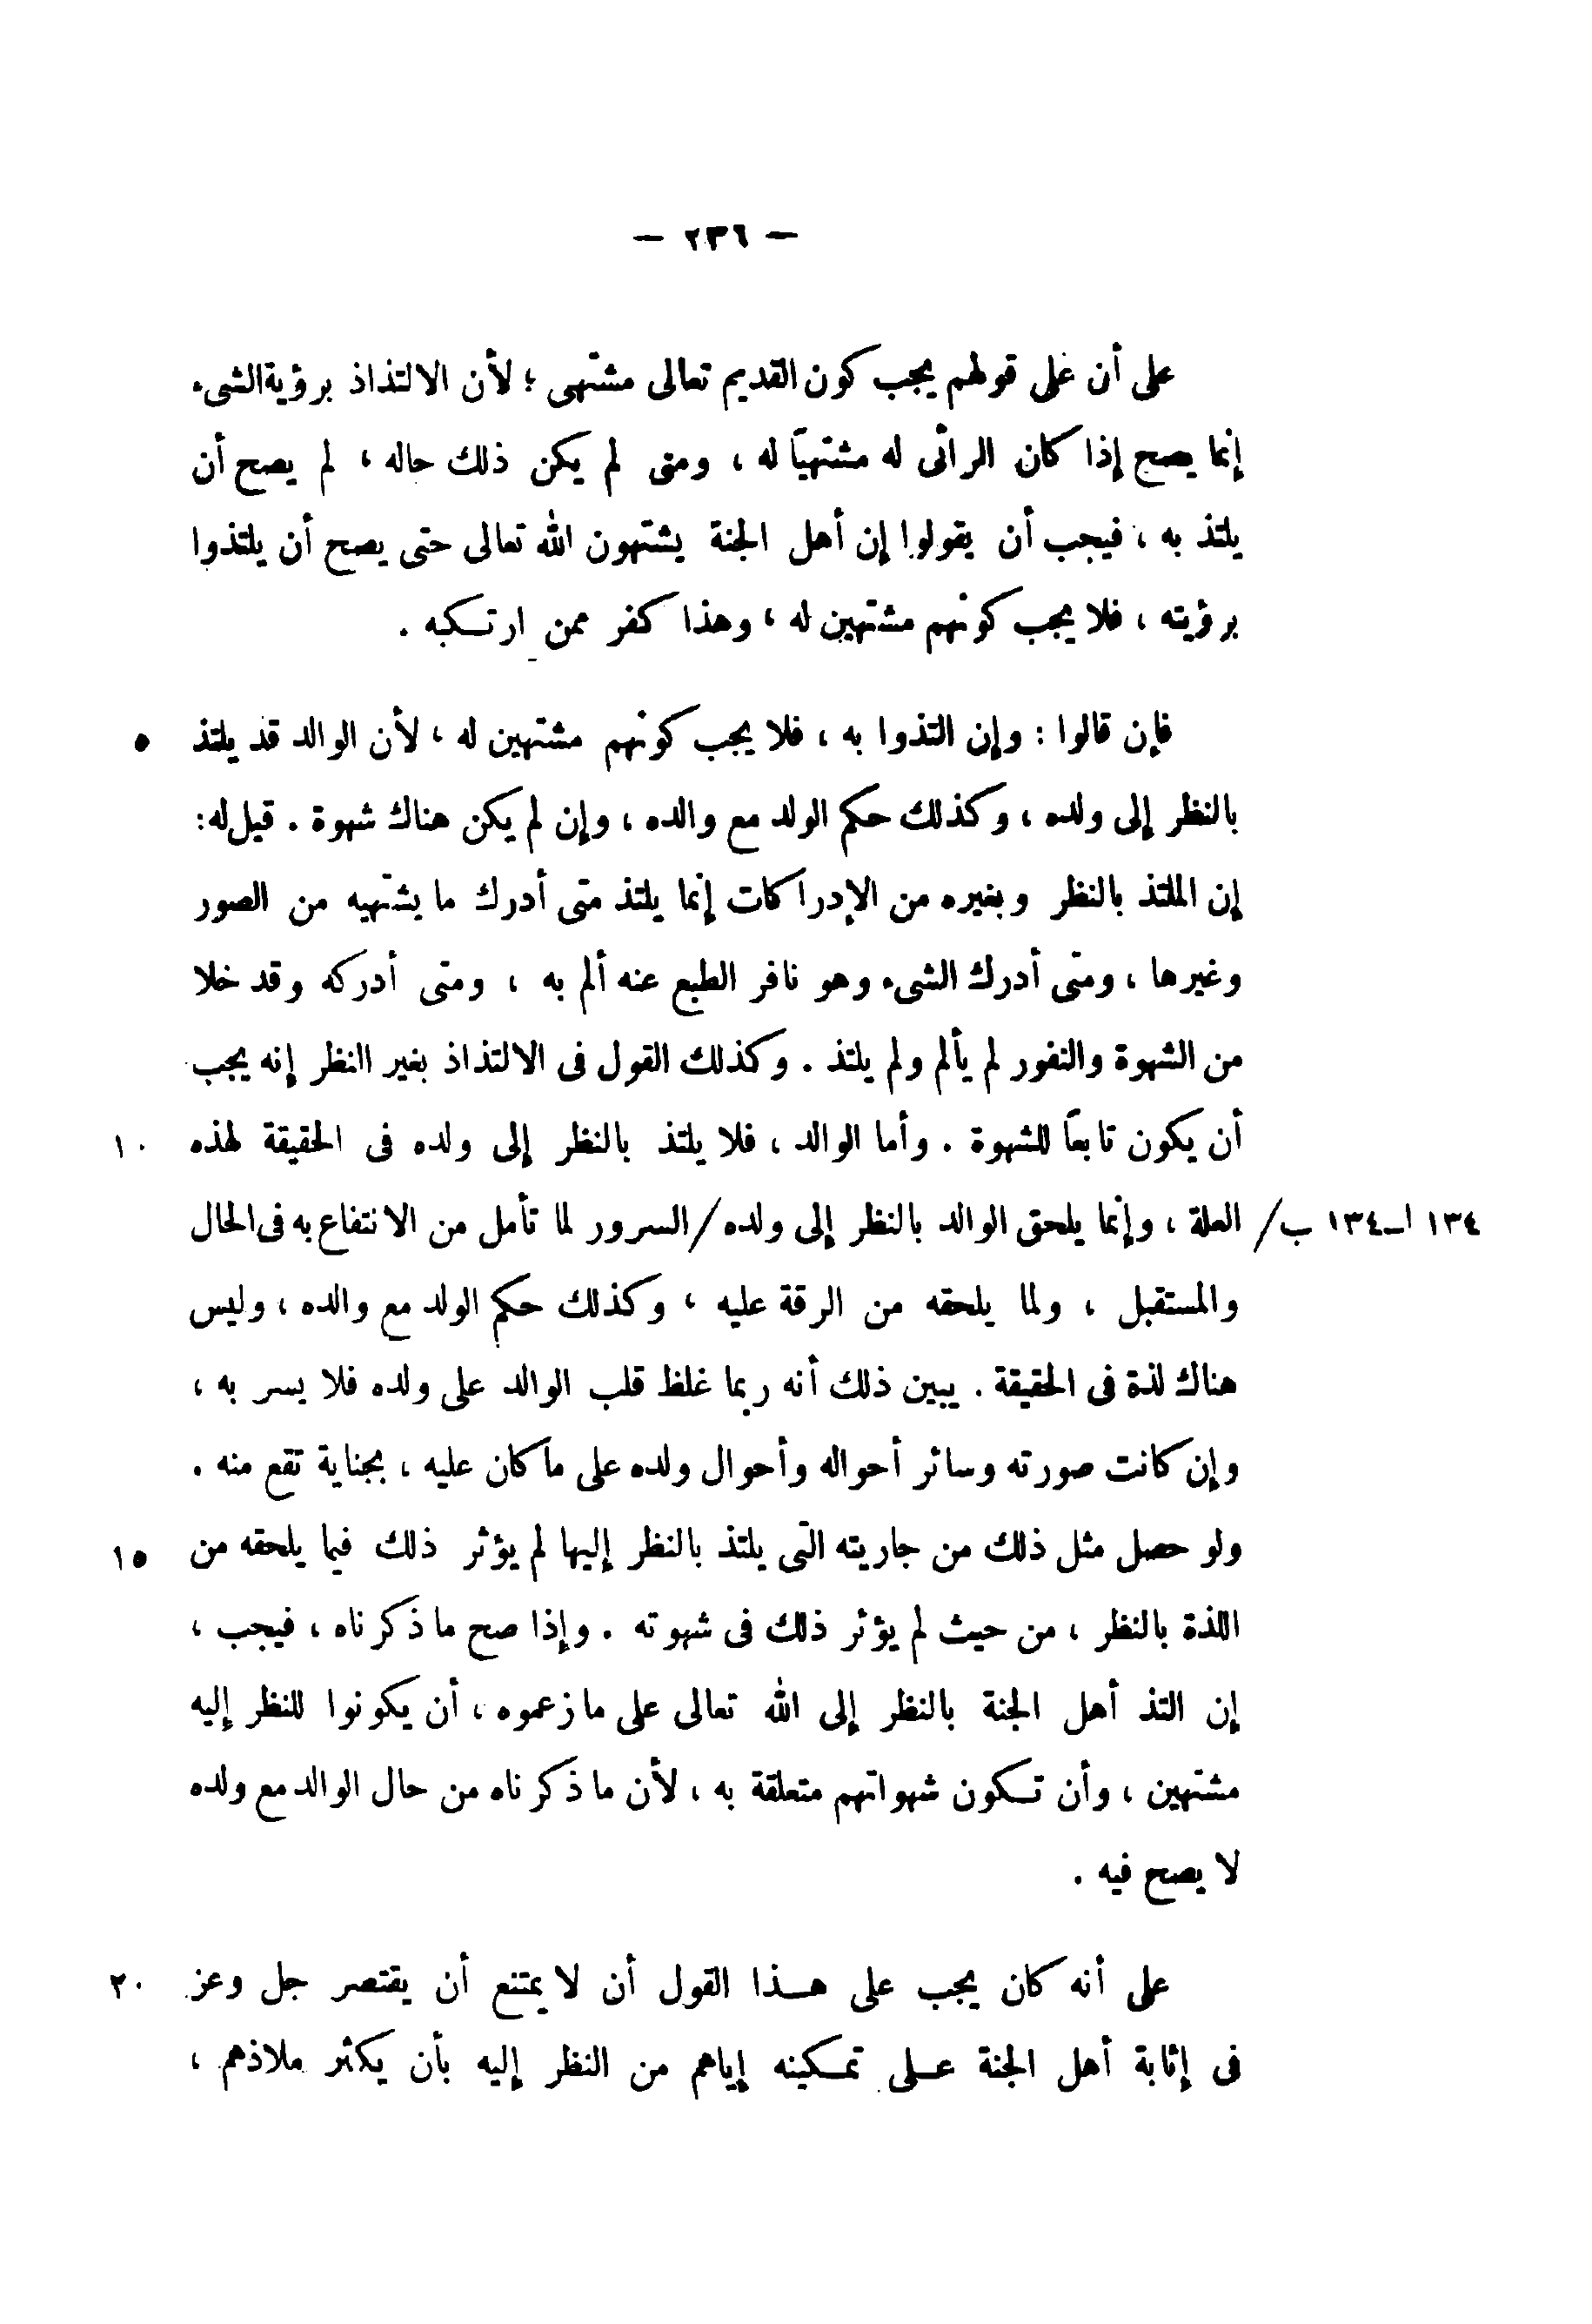 — ٢٣٦ —
على أن على قولهم يجب كون القديم تعالى مشتهى ؛ لأن الالتذاذ برؤية الشىء
إنما يصح إذا كان الرائى له مشتهيًا له ، ومتى لم يكن ذلك حاله ، لم يصح أن
يلتذ به ، فيجب أن يقولوا إن أهل الجنة يشتهون الله تعالى حتى يصح أن يلتذوا
برؤيته ، فلا يجب كونهم مشتهين له ، وهذا كفر ممن ارتكبه .
فإن قالوا : وإن التذوا به ، فلا يجب كونهم مشتهين له ، لأن الوالد قد يلتذ ٥
بالنظر إلى ولده ، وكذلك حكم الولد مع والده ، وإن لم يكن هناك شهوة . قيل له :
إن الملتذ بالنظر وبغيره من الإدراكات إنما يلتذ متى أدرك ما يشتهيه من الصور
وغيرها ، ومتى أدرك الشىء وهو نافر الطبع عنه ألم به ، ومتى أدركه وقد خلا
من الشهوة والنفور لم يألم ولم يلتذ . وكذلك القول فى الالتذاذ بغير النظر إنه يجب
أن يكون تابعًا للشهوة . وأما الوالد ، فلا يلتذ بالنظر إلى ولده فى الحقيقة لهذه ١٠
١٣٤ ا-١٣٤ ب/ العلة ، وإنما يلحق الوالد بالنظر إلى ولده/السرور لما تأمل من الانتفاع به فى الحال
والمستقبل ، ولما يلحقه من الرقة عليه ، وكذلك حكم الولد مع والده ، وليس
هناك لذة فى الحقيقة . يبين ذلك أنه ربما غلظ قلب الوالد على ولده فلا يسر به ،
وإن كانت صورته وسائر أحواله وأحوال ولده على ما كان عليه ، بجناية تقع منه .
ولو حصل مثل ذلك من جاريته التى يلتذ بالنظر إليها لم يؤثر ذلك فيما يلحقه من ١٥
اللذة بالنظر ، من حيث لم يؤثر ذلك فى شهوته . وإذا صح ما ذكرناه ، فيجب ،
إن التذ أهل الجنة بالنظر إلى الله تعالى على ما زعموه ، أن يكونوا للنظر إليه
مشتهين ، وأن تكون شهواتهم متعلقة به ، لأن ما ذكرناه من حال الوالد مع ولده
لا يصح فيه .
على أنه كان يجب على هذا القول أن لا يمتنع أن يقتصر جل وعز ٢٠
فى إثابة أهل الجنة على تمكينه إياهم من النظر إليه بأن يكثر ملاذهم ،